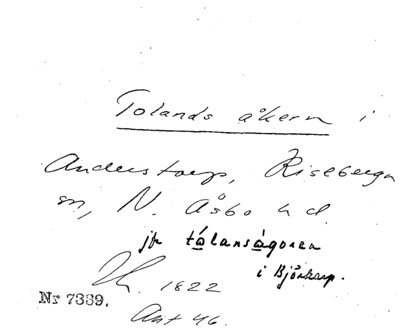 Tolands åkern i
Anderstorp, Riseberga
sn, N. Åsbo hd.
jfr tålanságorna
i Björkarp.
1822
Nr 7339.
Ant 46.